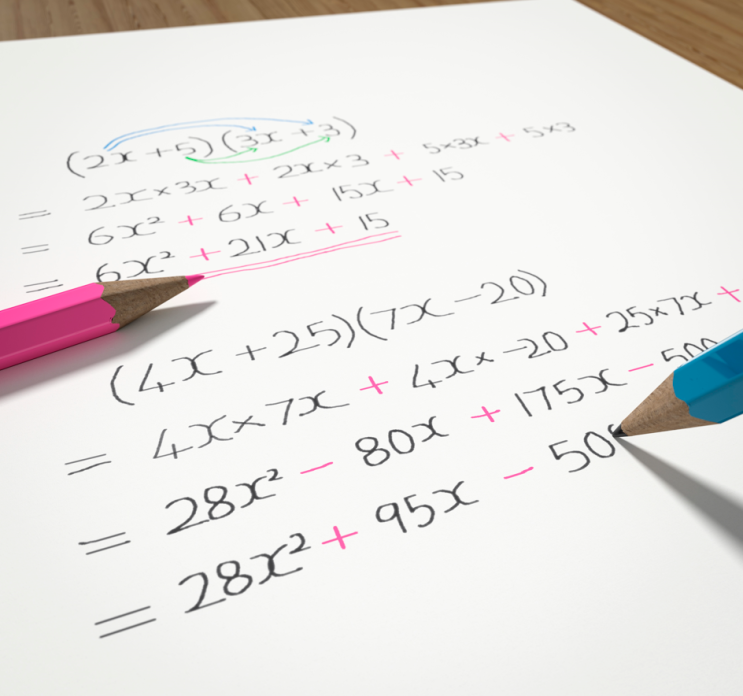 (2x + 5)(3x + 3)
= 2x × 3x + 2x × 3 + 5 × 3x + 5 × 3
= 6x² + 6x + 15x + 15
= 6x² + 21x + 15
(4x + 25)(7x − 20)
= 4x × 7x + 4x × −20 + 25 × 7x +
= 28x² − 80x + 175x − 500
= 28x² + 95x − 50